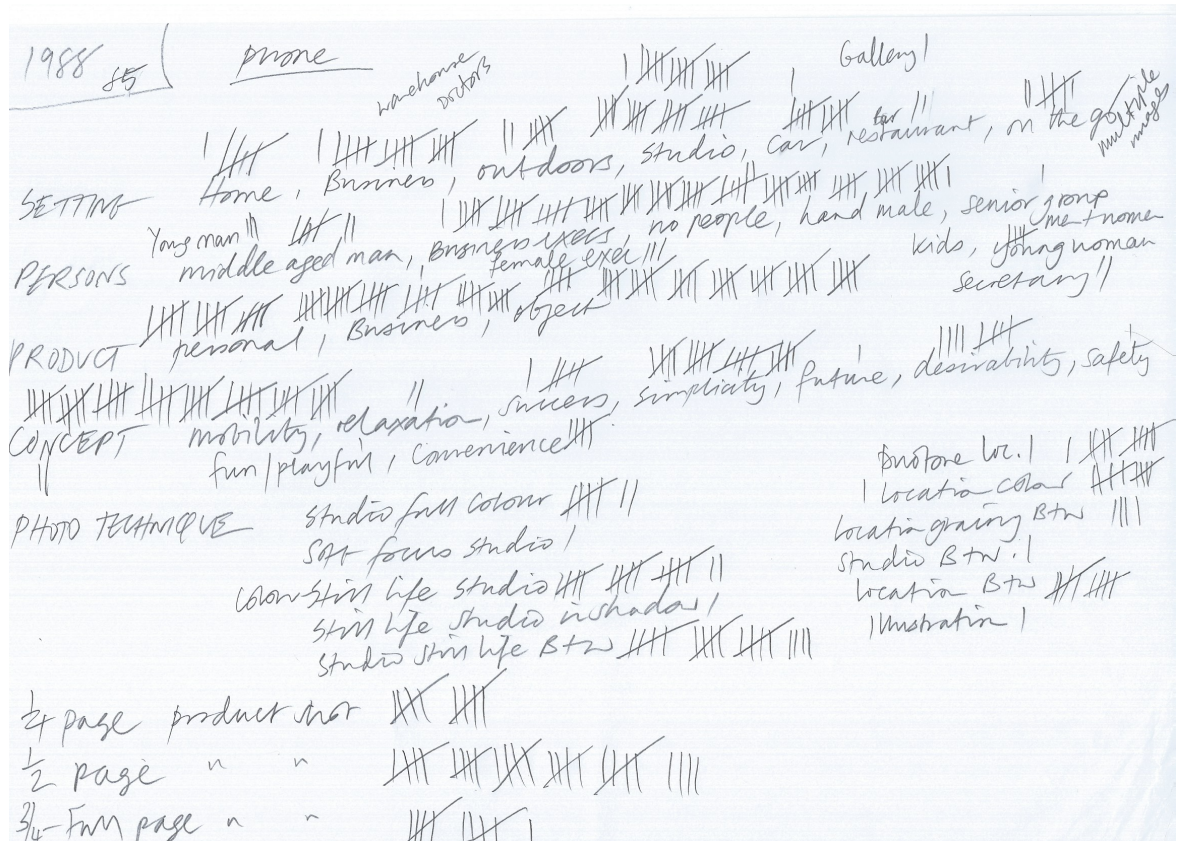 1988 85 phone
warehouse
Doctors
Gallery |
| 卌 卌 卌
| 卌 | 卌 卌 卌 || 卌 卌 卌 卌 卌 | 卌 卌 Bar || || 卌
SETTING Home, Business, outdoors, Studio, Car, restaurant, on the go, multiple images
Young man ||| 卌 ||
PERSONS middle aged man, Business execs, no people, hand male, senior group
female exec ||| kids, young woman men + women
secretary ||
PRODUCT personal, Business, object
CONCEPT mobility, relaxation, success, simplicity, future, desirability, safety
fun/playful, Convenience 卌
PHOTO TECHNIQUE
Studio full colour 卌 ||
Soft focus studio |
Colour Still life studio 卌 卌 卌 ||
Still life studio in shadow |
Studio still life B+W 卌 卌 卌 ||||
Duotone loc. |
location colour
location grainy B+W ||||
studio B+W. |
location B+W 卌 卌
Illustration |
1/4 page product shot 卌 卌
1/2 page " " 卌 卌 卌 卌 卌 ||||
3/4 - Full page " " 卌 卌 |